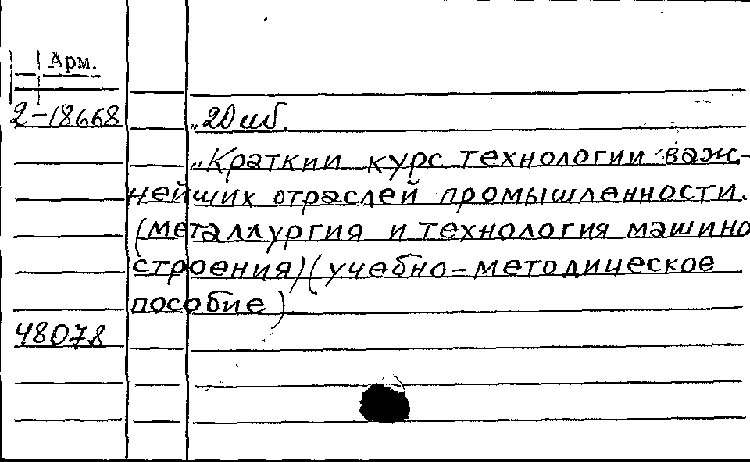 Арм.
2-18668
"Краткий курс технологии важ-
нейших отраслей промышленности.
(металлургия и технология машино
строения) (учебно-методическое
пособие)
48078